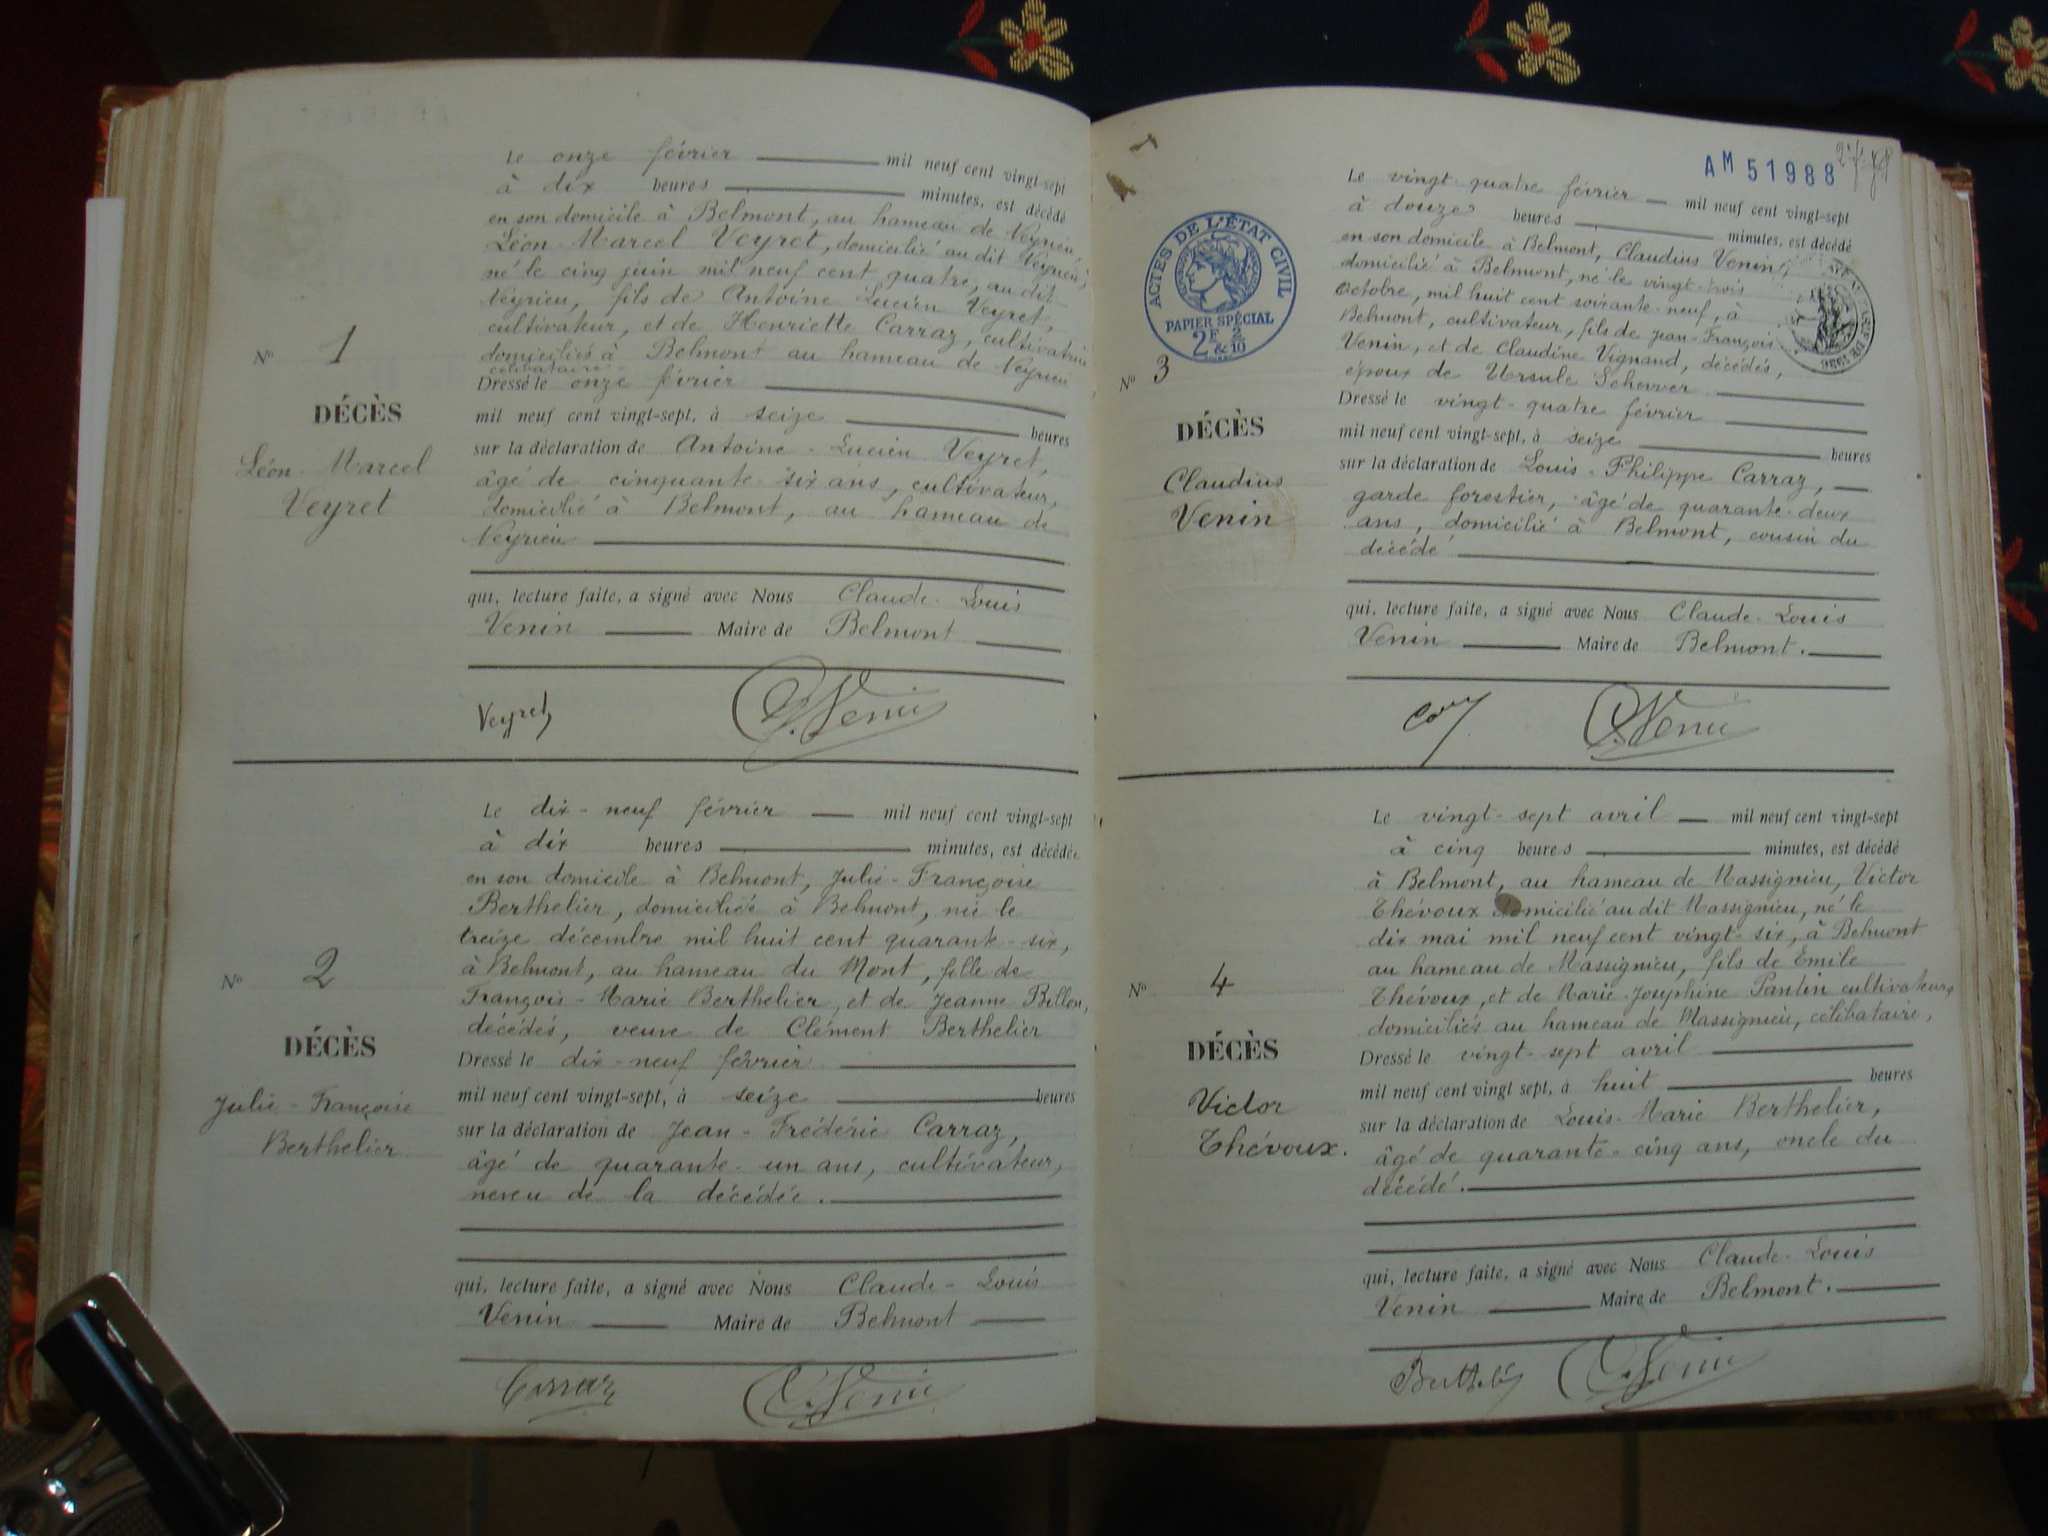 Le onze février mil neuf cent vingt-sept
à dix heures minutes, est décédé
en son domicile à Belmont, au hameau de Veyrieu,
Léon-Marcel Veyret, domicilié au dit Veyrieu,
né le cinq juin mil neuf cent quatre, au dit
Veyrieu, fils de Antoine Lucien Veyret,
cultivateur, et de Henriette Carraz, cultivatrice
domiciliés à Belmont au hameau de Veyrieu
célibataire
Nº 1
DÉCÈS
Léon-Marcel
Veyret
Dressé le onze février
mil neuf cent vingt-sept, à seize heures
sur la déclaration de Antoine-Lucien Veyret,
âgé de cinquante-six ans, cultivateur,
domicilié à Belmont, au hameau de
Veyrieu
qui, lecture faite, a signé avec Nous Claude-Louis
Venin Maire de Belmont
Veyret C.Venin
Le dix-neuf février mil neuf cent vingt-sept
à dix heures minutes, est décédée
en son domicile à Belmont, Julie-Françoise
Berthelier, domiciliée à Belmont, née le
treize décembre mil huit cent quarante-six,
à Belmont, au hameau du Mont, fille de
François-Marie Berthelier, et de Jeanne Billon,
décédés, veuve de Clément Berthelier
Nº 2
DÉCÈS
Julie-Françoise
Berthelier
Dressé le dix-neuf février
mil neuf cent vingt-sept, à seize heures
sur la déclaration de Jean-Frédéric Carraz,
âgé de quarante-un ans, cultivateur,
neveu de la décédée.
qui, lecture faite, a signé avec Nous Claude-Louis
Venin Maire de Belmont
Carraz C.Venin
AM 51988
ACTES DE L'ÉTAT CIVIL
PAPIER SPÉCIAL
2F & 2/10
Le vingt-quatre février mil neuf cent vingt-sept
à douze heures minutes, est décédé
en son domicile à Belmont, Claudius Venin,
domicilié à Belmont, né le vingt-trois
octobre, mil huit cent soixante-neuf, à
Belmont, cultivateur, fils de Jean-François
Venin, et de Claudine Vignand, décédés,
époux de Ursule Scherrer
Nº 3
DÉCÈS
Claudius
Venin
Dressé le vingt-quatre février
mil neuf cent vingt-sept, à seize heures
sur la déclaration de Louis-Philippe Carraz,
garde forestier, âgé de quarante-deux
ans, domicilié à Belmont, cousin du
décédé
qui, lecture faite, a signé avec Nous Claude-Louis
Venin Maire de Belmont.
C.Venin
Le vingt-sept avril mil neuf cent vingt-sept
à cinq heures minutes, est décédé
à Belmont, au hameau de Massignieu, Victor
Thévoux domicilié au dit Massignieu, né le
dix mai mil neuf cent vingt-six, à Belmont
au hameau de Massignieu, fils de Emile
Thévoux, et de Marie-Joséphine Pantin cultivateurs,
domiciliés au hameau de Massignieu, célibataire,
Nº 4
DÉCÈS
Victor
Thévoux.
Dressé le vingt-sept avril
mil neuf cent vingt sept, à huit heures
sur la déclaration de Louis-Marie Berthelier,
âgé de quarante-cinq ans, oncle du
décédé.
qui, lecture faite, a signé avec Nous Claude-Louis
Venin Maire de Belmont.
C.Venin